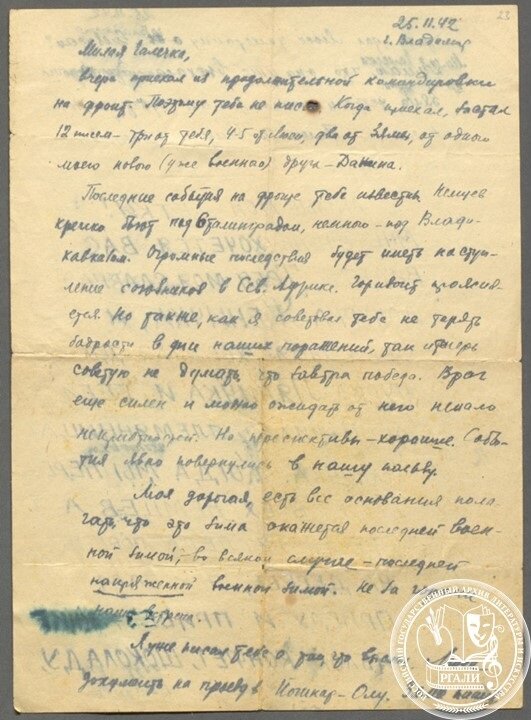 23
25.11.42
г. Владимир
Милая Галечка,
Вчера приехал из продолжительной командировки
на фронт. Поэтому тебе не писал. Когда приехал, застал
12 писем – три от тебя, 4-5 от Люси, два от Зямы, от одного
моего нового (уже военного) друга – Данина.
Последние события на фронте тебе известны. Немцев
крепко бьют под Сталинградом, немного – под Влади-
кавказом. Огромные последствия будет иметь насту-
пление союзников в Сев. Африке. Горизонт проясня-
ется. Но также, как я советовал тебе не терять
бодрости в дни наших поражений, так и теперь
советую не думать что завтра победа. Враг
еще силен и можно ожидать от него немало
неприятностей. Но перспективы – хорошие. Собы-
тия явно повернулись в нашу пользу.
Моя дорогая, есть все основания пола-
гать, что эта зима окажется последней воен-
ной зимой, во всяком случае – последней
напряженной военной зимой. Не за
Я уже писал тебе о том, что
документы на проезд в Йошкар-Олу.
РГАЛИ